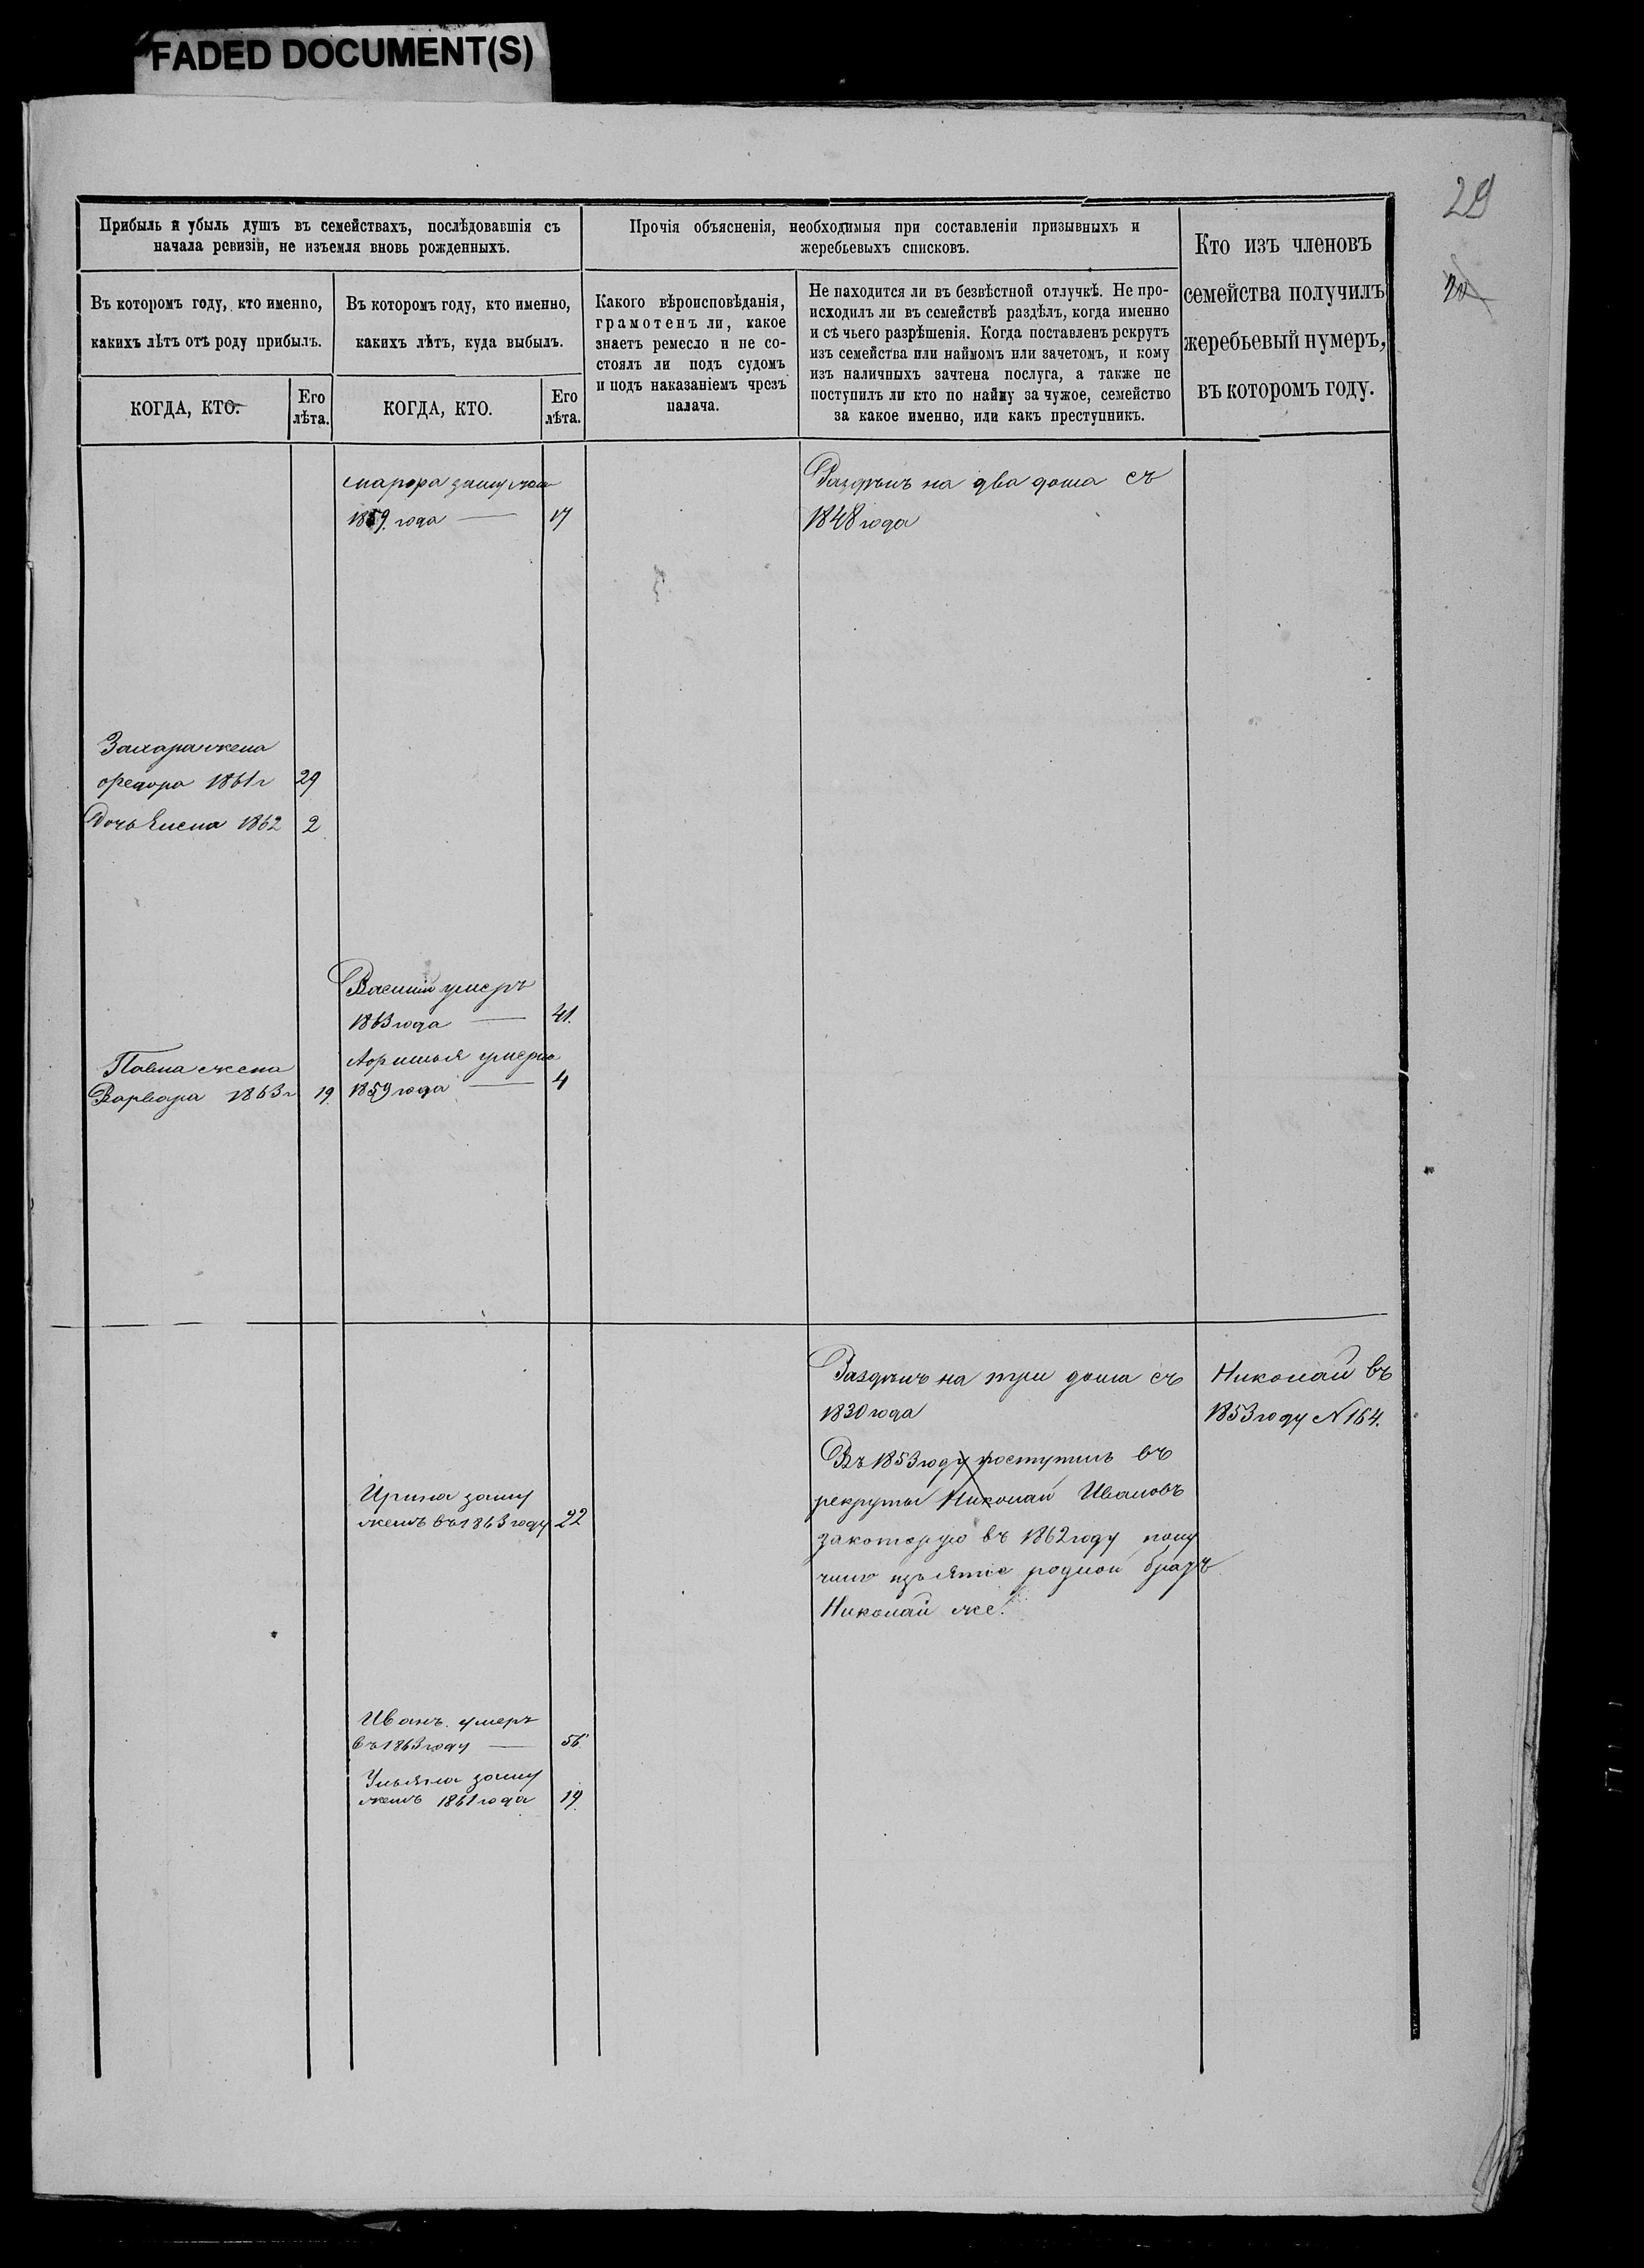 FADED DOCUMENT(S)
29
Прибыль и убыль душъ въ семействахъ, послѣдовавшія съ
начала ревизіи, не изъемля вновь рожденныхъ.
Въ которомъ году, кто именно,
какихъ лѣтъ отъ роду прибылъ.
КОГДА, КТО.
Его
лѣта.
Въ которомъ году, кто именно,
какихъ лѣтъ, куда выбылъ.
КОГДА, КТО.
Его
лѣта.
Прочія объясненія, необходимыя при составленіи призывныхъ и
жеребьевыхъ списковъ.
Какого вѣроисповѣданія,
грамотенъ ли, какое
знаетъ ремесло и не со-
стоялъ ли подъ судомъ
и подъ наказаніемъ чрезъ
палача.
Не находится ли въ безвѣстной отлучкѣ. Не про-
исходилъ ли въ семействѣ раздѣлъ, когда именно
и съ чьего разрѣшенія. Когда поставленъ рекрутъ
изъ семейства или наймомъ или зачетомъ, и кому
изъ наличныхъ зачтена послуга, а также не
поступилъ ли кто по найму за чужое, семейство
за какое именно, или какъ преступникъ.
Кто изъ членовъ
семейства получилъ
жеребьевый нумеръ,
въ которомъ году.
Марфа замужъ
1859. года — 17
Раздѣлъ на два дома съ
1848 года
Захара жена
Федора 1861 г 29
Дочь Елена 1862 2
Василій умеръ
1863 года — 41.
Павла жена
Варвара 1863 г 19.
умерла
1859 года — 4
Раздѣлъ на три дома съ
1830 года
Въ 1853 году поступилъ въ
рекруты Николай Ивановъ
закоторую въ 1862 году полу
чилъ изъятіе родной братъ
Николай же.
Николай въ
1853 году N 164.
Ирина заму
жемъ въ 1863 году 22
Иванъ. умеръ
въ 1863 году — 56
Ульяна заму
жемъ 1861 года 19.